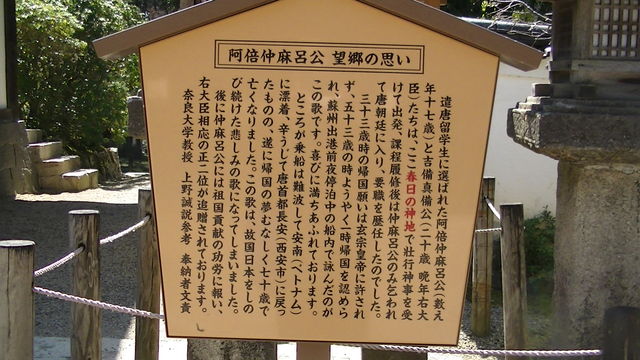 阿倍仲麻呂公 望郷の思い
遣唐留学生に選ばれた阿倍仲麻呂公（数え
年十七歳）と吉備真備公（二十歳 晩年右大
臣）たちは、ここ春日の神地で壮行神事を受
けて出発、課程履修後は仲麻呂公のみとわれ
て唐朝廷に入り、要職を歴任したのでした。
三十三歳時の帰国願いは玄宗皇帝に許され
ず、五十三歳の時ようやく一時帰国を認めら
れ、蘇州出港前夜停泊中の船内で詠んだのが
この歌です。喜びに満ちあふれております。
ところが乗船は難波して安南（ベトナム）
に漂着、辛うじて唐首都長安（西安市）に戻っ
たものの、遂に帰国の夢むなしく七十歳で
亡くなりました。この歌は、故国日本をしの
び続けた悲しみの歌になってしまいました。
後に仲麻呂公には祖国貢献の功労に報い、
右大臣相応の正二位が追贈されております。
奈良大学教授 上野誠説参考 奉納者文責